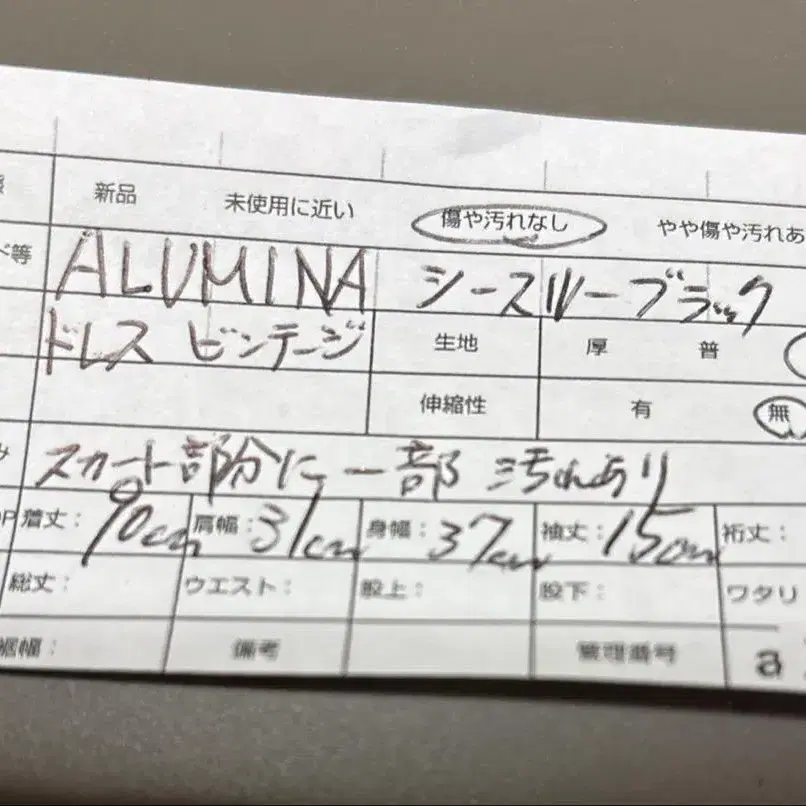 新品 未使用に近い 傷や汚れなし やや傷や汚れあ
ド等 ALUMINA シースルーブラック
ドレス ビンテージ 生地 厚 普
伸縮性 有 無
スカート部分に一部 汚れあり
着丈: 90cm 肩幅: 31cm 身幅: 37cm 袖丈: 15cm 裄丈:
総丈: ウエスト: 股上: 股下: ワタリ
裾幅: 備考 管理番号 a